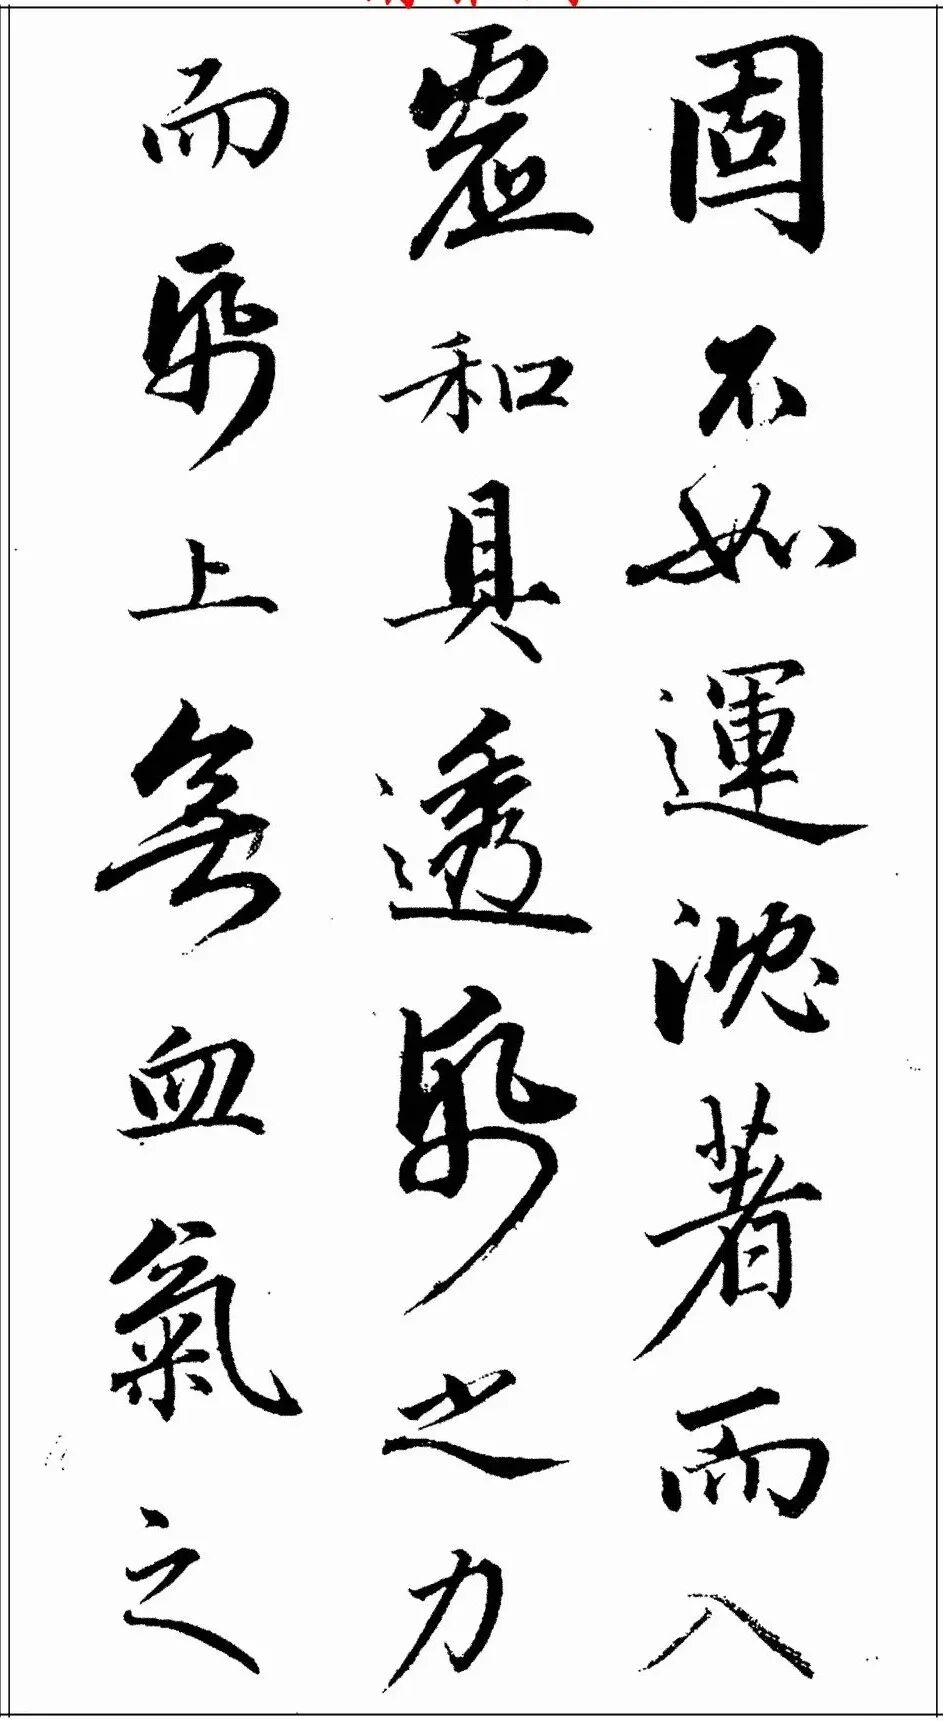 固不如運沈著而入
虛和具透紙之力
而紙上無血氣之